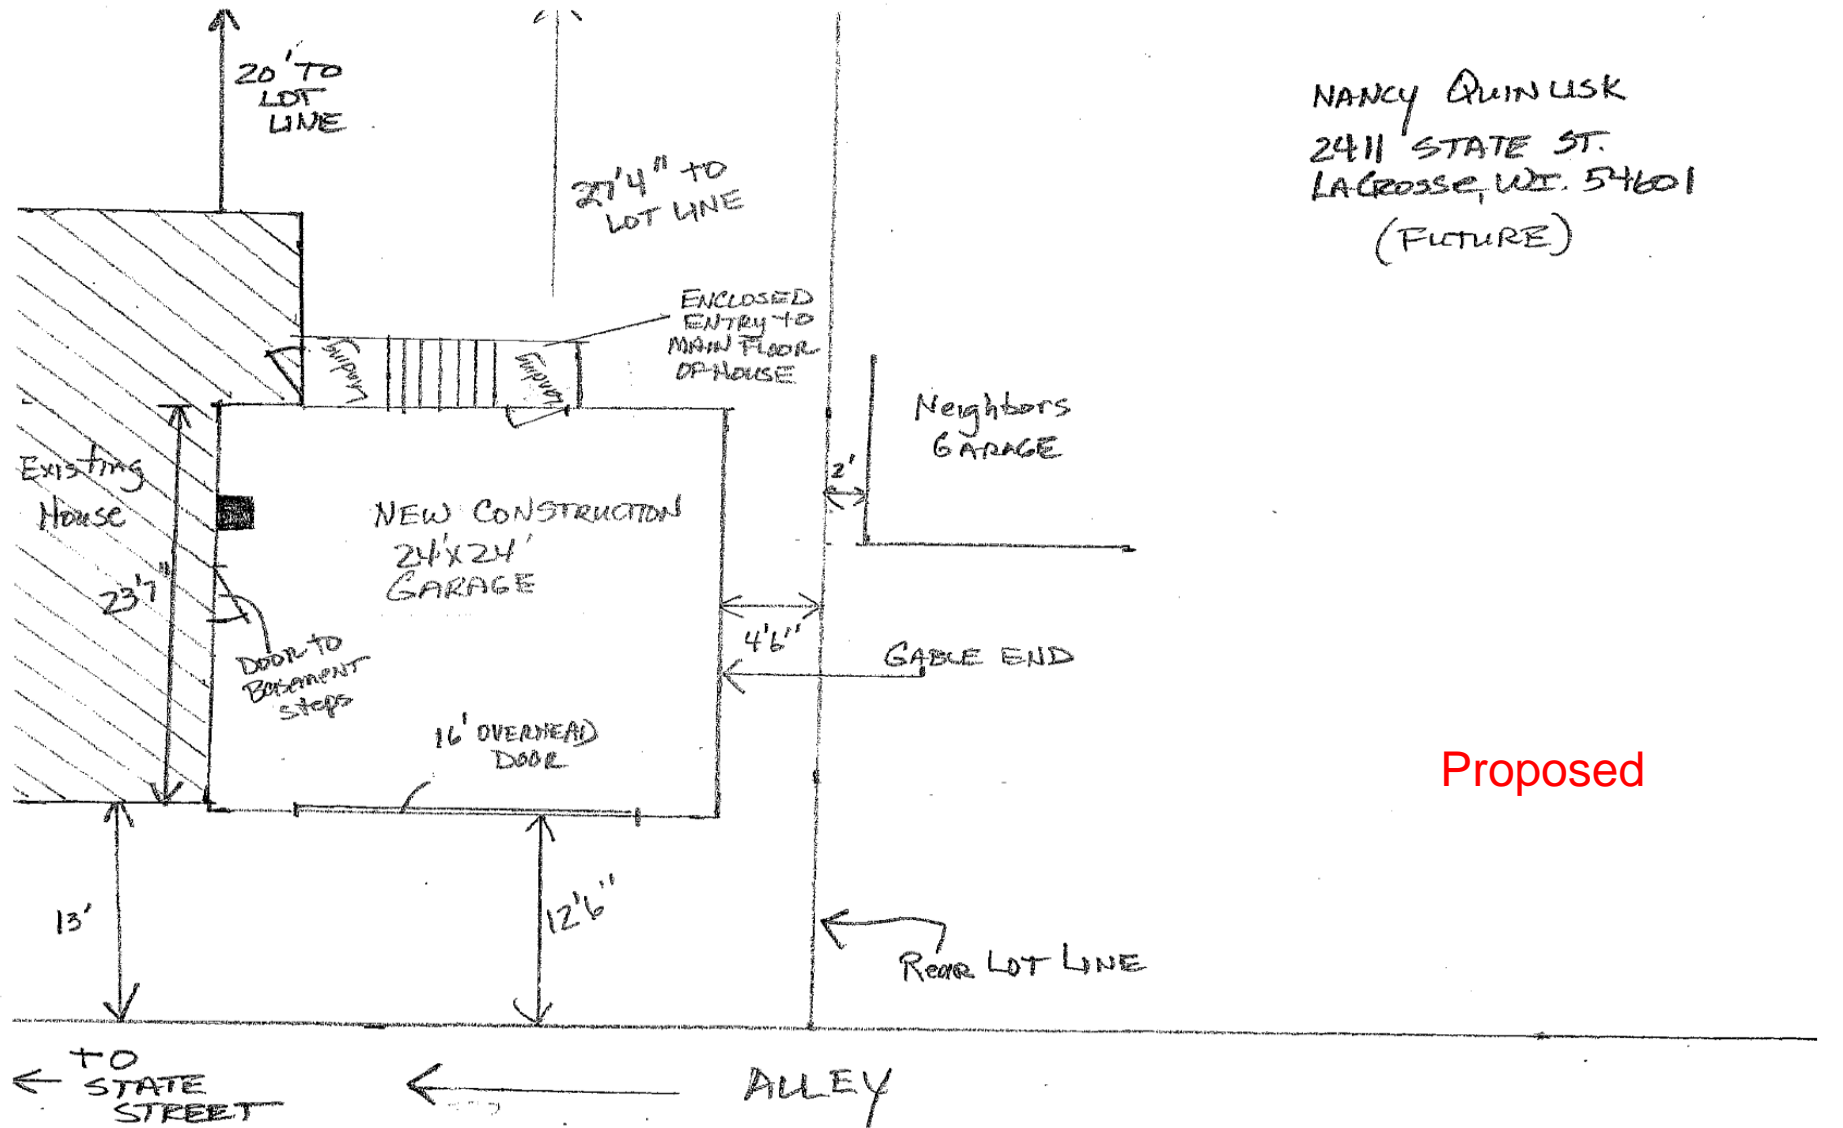 20' TO
LOT
LINE
27'4" TO
LOT LINE
NANCY QUINLISK
2411 STATE ST.
LACROSSE, WI. 54601
(FUTURE)
ENCLOSED
ENTRY TO
MAIN FLOOR
OF HOUSE
Landing
Landing
Neighbors
GARAGE
2'
Existing
House
NEW CONSTRUCTION
24'X24'
GARAGE
23'7"
4'6"
GABLE END
DOOR TO
Basement
steps
16' OVERHEAD
DOOR
Proposed
13'
12'6"
Rear LOT LINE
TO
STATE
STREET
ALLEY